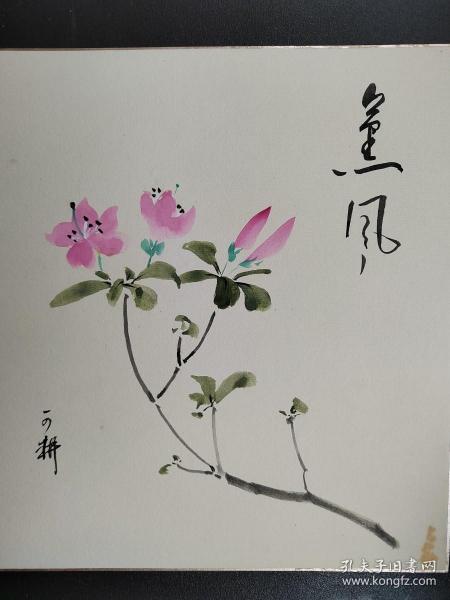 薫风
可耕
孔夫子旧书网
www.kongfz.com